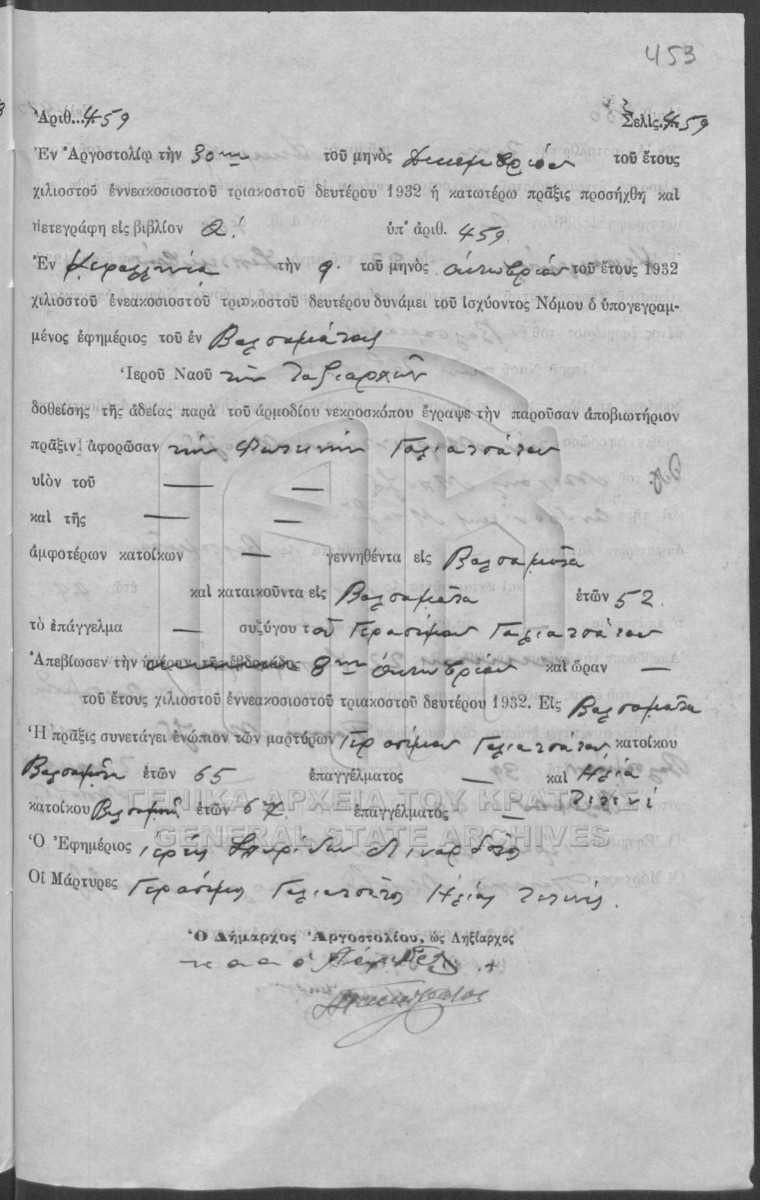 453
Ἀριθ...459 Σελίς.459
Ἐν Ἀργοστολίῳ τὴν 30ην τοῦ μηνὸς Δεκεμβρίου τοῦ ἔτους
χιλιοστοῦ ἐννεακοσιοστοῦ τριακοστοῦ δευτέρου 1932 ἡ κατωτέρω πρᾶξις προσήχθη καὶ
μετεγράφη εἰς βιβλίον Α! ὑπ' ἀριθ. 459.
Ἐν Κεφαλληνίᾳ τὴν 9. τοῦ μηνὸς Ὀκτωβρίου τοῦ ἔτους 1932
χιλιοστοῦ ἐνεακοσιοστοῦ τριακοστοῦ δευτέρου δυνάμει τοῦ ἰσχύοντος Νόμου ὁ ὑπογεγραμ-
μένος ἐφημέριος τοῦ ἐν Βαλσαμάτοις
Ἱεροῦ Ναοῦ τῶν Ταξιαρχῶν
δοθείσης τῆς ἀδείας παρὰ τοῦ ἁρμοδίου νεκροσκόπου ἔγραψε τὴν παροῦσαν ἀποβιωτήριον
πρᾶξιν ἀφορῶσαν τὴν Φωτεινὴν Γαλιατσάτου
υἱὸν τοῦ — —
καὶ τῆς — —
ἀμφοτέρων κατοίκων — γεννηθέντα εἰς Βαλσαμᾶτα
καὶ καταικοῦντα εἰς Βαλσαμᾶτα ἐτῶν 52
τὸ ἐπάγγελμα — συζύγου τοῦ Γερασίμου Γαλιατσάτου
Ἀπεβίωσεν τὴν ἡμέραν τῆς ἑβδομάδος 8ην Ὀκτωβρίου καὶ ὥραν —
τοῦ ἔτους χιλιοστοῦ ἐννεακοσιοστοῦ τριακοστοῦ δευτέρου 1932. Εἰς Βαλσαμᾶτα
Ἡ πρᾶξις συνετάγει ἐνώπιον τῶν μαρτύρων Γερασίμου Γαλιατσάτου κατοίκου
Βαλσαμᾶτα ἐτῶν 65 ἐπαγγέλματος — καὶ Ἠλία
Τιτινῆ
κατοίκου Βαλσαμᾶτ. ἐτῶν 67 ἐπαγγέλματος —
ΓΕΝΙΚΑ ΑΡΧΕΙΑ ΤΟΥ ΚΡΑΤΟΥΣ
GENERAL STATE ARCHIVES
Ὁ Ἐφημέριος ἱερεὺς Σπυρίδων
Οἱ Μάρτυρες Γεράσιμος Γαλιατσάτος Ἠλίας Τιτινῆς.
Ὁ Δήμαρχος Ἀργοστολίου, ὡς Ληξίαρχος